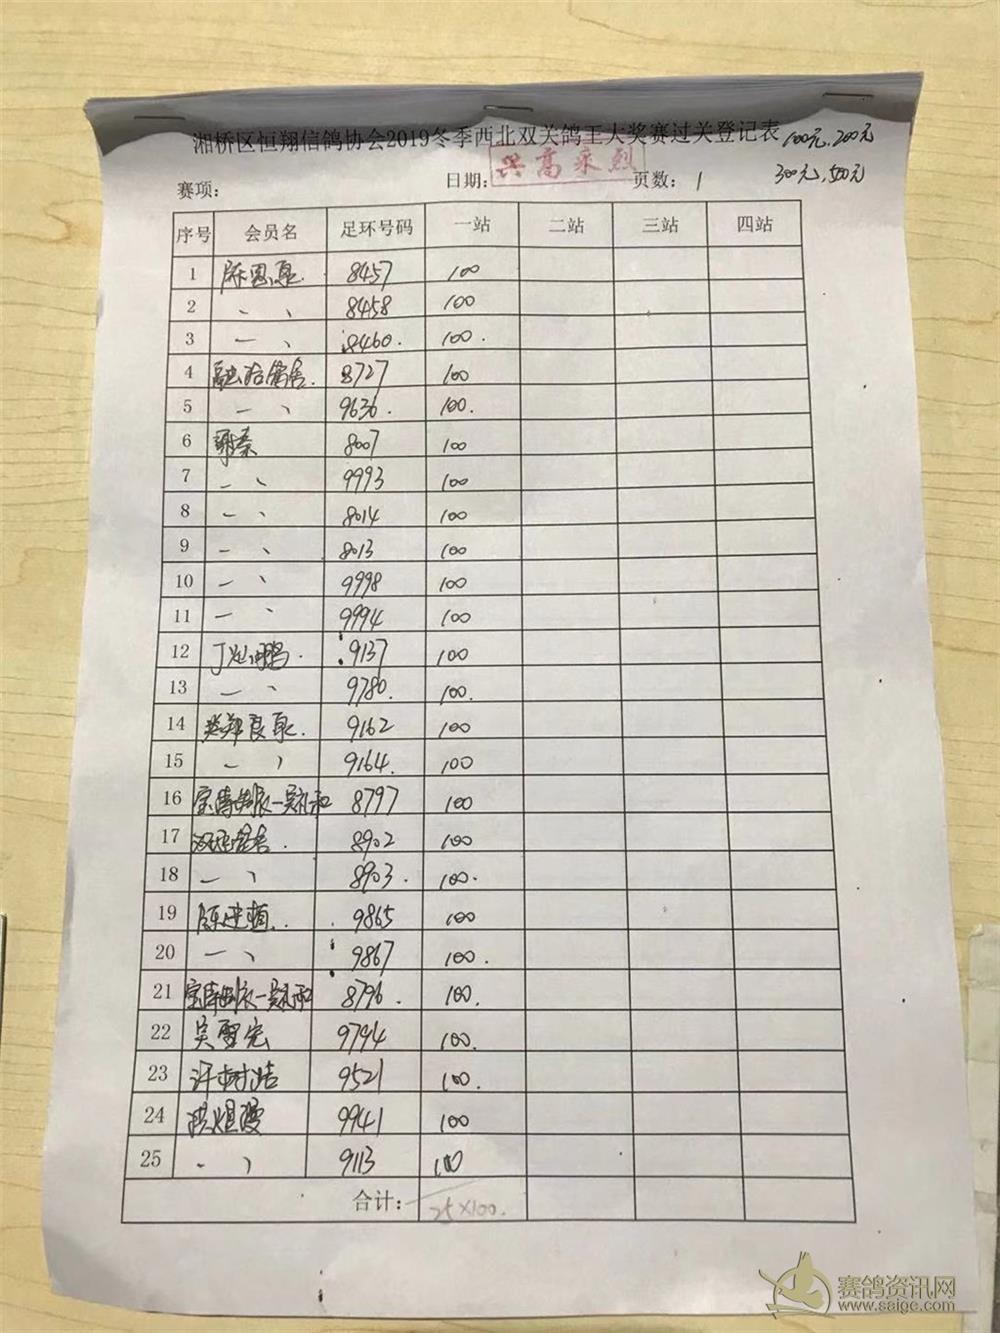 湘桥区恒翔信鸽协会2019冬季西北双关鸽王大奖赛过关登记表 100元,200元
300元,500元
赛项: 日期: 兴高采烈 页数: 1
序号 会员名 足环号码 一站 二站 三站 四站
1 8457 100
2 〃 8458 100
3 〃 8460. 100.
4 8727 100
5 〃 9636. 100.
6 谢秦 8007 100
7 〃 9993 100
8 〃 8014 100
9 〃 8013 100
10 〃 9998 100
11 〃 9994 100
12 9137 100
13 〃 9780. 100.
14 9162 100
15 〃 9164. 100
16 8797 100
17 8902 100
18 〃 8903. 100.
19 陈建 9865 100
20 〃 9867 100.
21 8796. 100.
22 9794 100.
23 许树 9521 100.
24 洪煜 9941 100
25 〃 9113 100
合计: 25×100.
赛鸽资讯网
www.saige.com